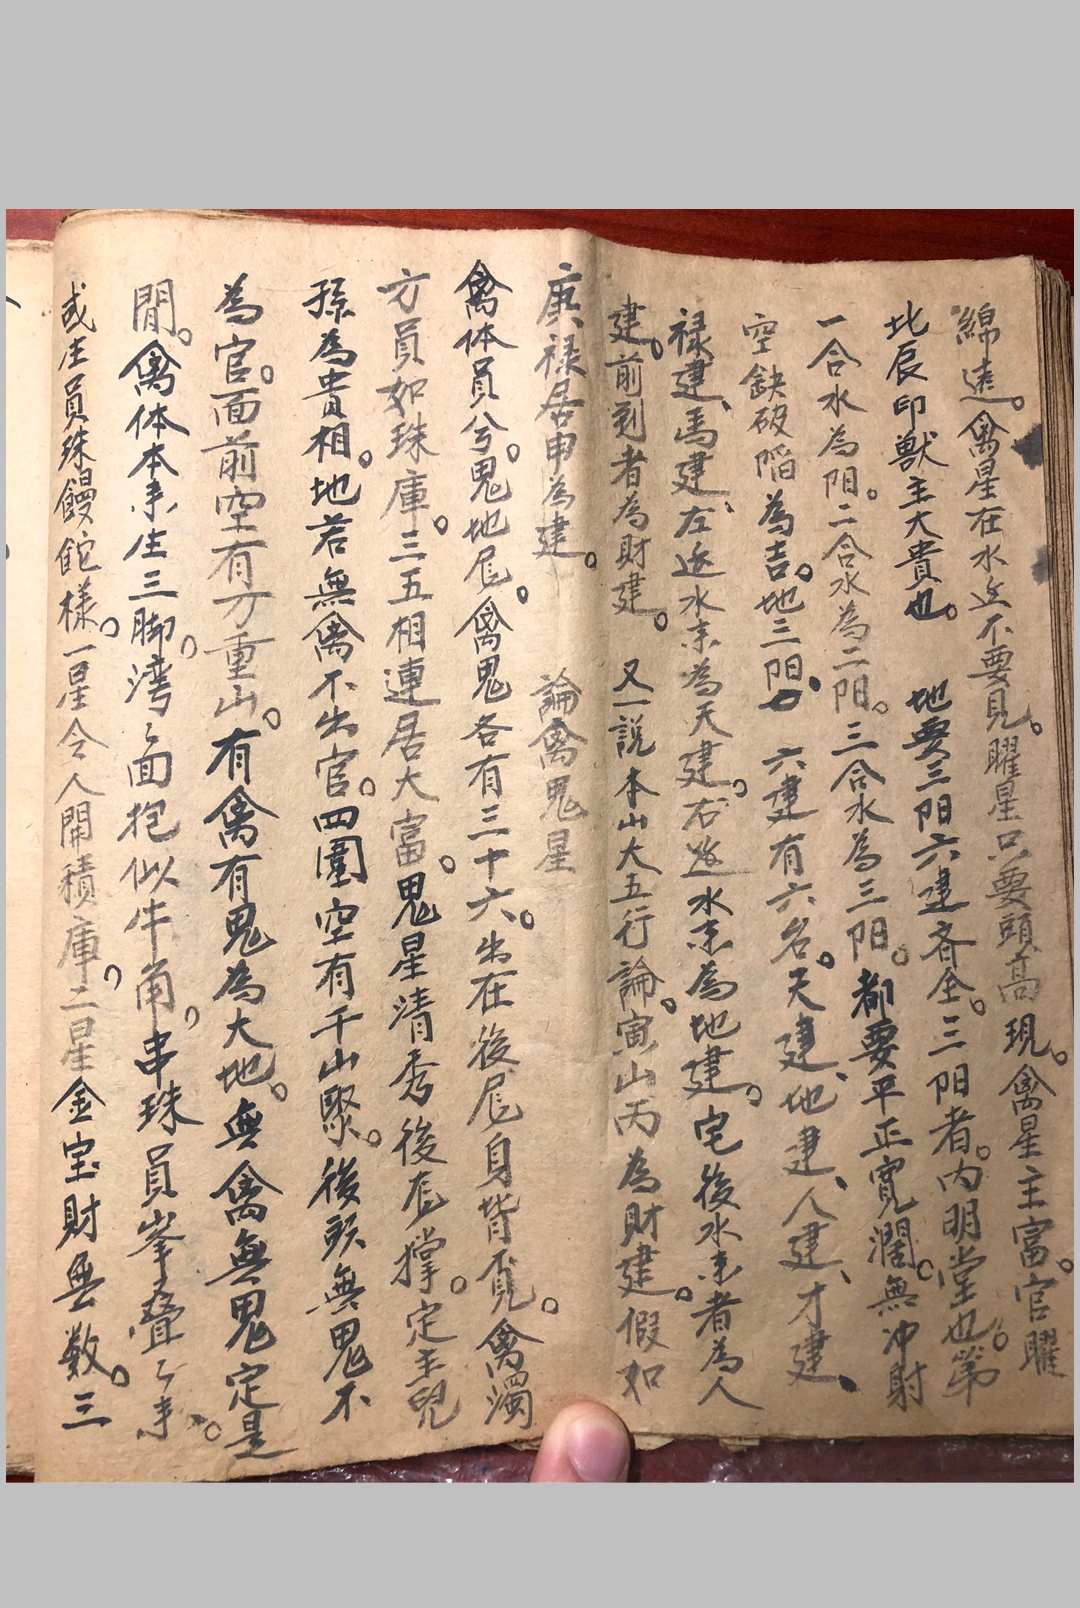 綿遠。禽星在水边不要見。曜星只要頭高現。禽星主富。官曜
北辰印獸主大貴也。 地要三阳六建斉全。三阳者。内明堂也。第
一合水為阳。二合水為二阳。三合水為三阳。都要平正寬濶。無冲射
空缺破陷為吉。地三阳。 六建有六名。天建、地建、人建、才建、
禄建、馬建、左边水來為天建。右边水來為地建。宅後水來者為人
建。前到者為財建。 又一說本山大五行論。寅山丙為財建。假如
庚禄居申為建。 論禽鬼星
禽体員兮。鬼地尾。禽鬼各有三十六。出在後尾身背覔。禽濁
方員如珠庫。三五相連居大富。鬼星清秀後有撑。定主兒
孫為貴相。地若無禽不出官。四圍空有千山聚。後頭無鬼不
為官。面前空有万重山。有禽有鬼為大地。無禽無鬼定是
閒。禽体本來生三脚。湾〻面抱似牛角。串珠員峯叠〻來。
或生員珠饅鉈樣。一星令人開積庫。二星金宝財無数。三